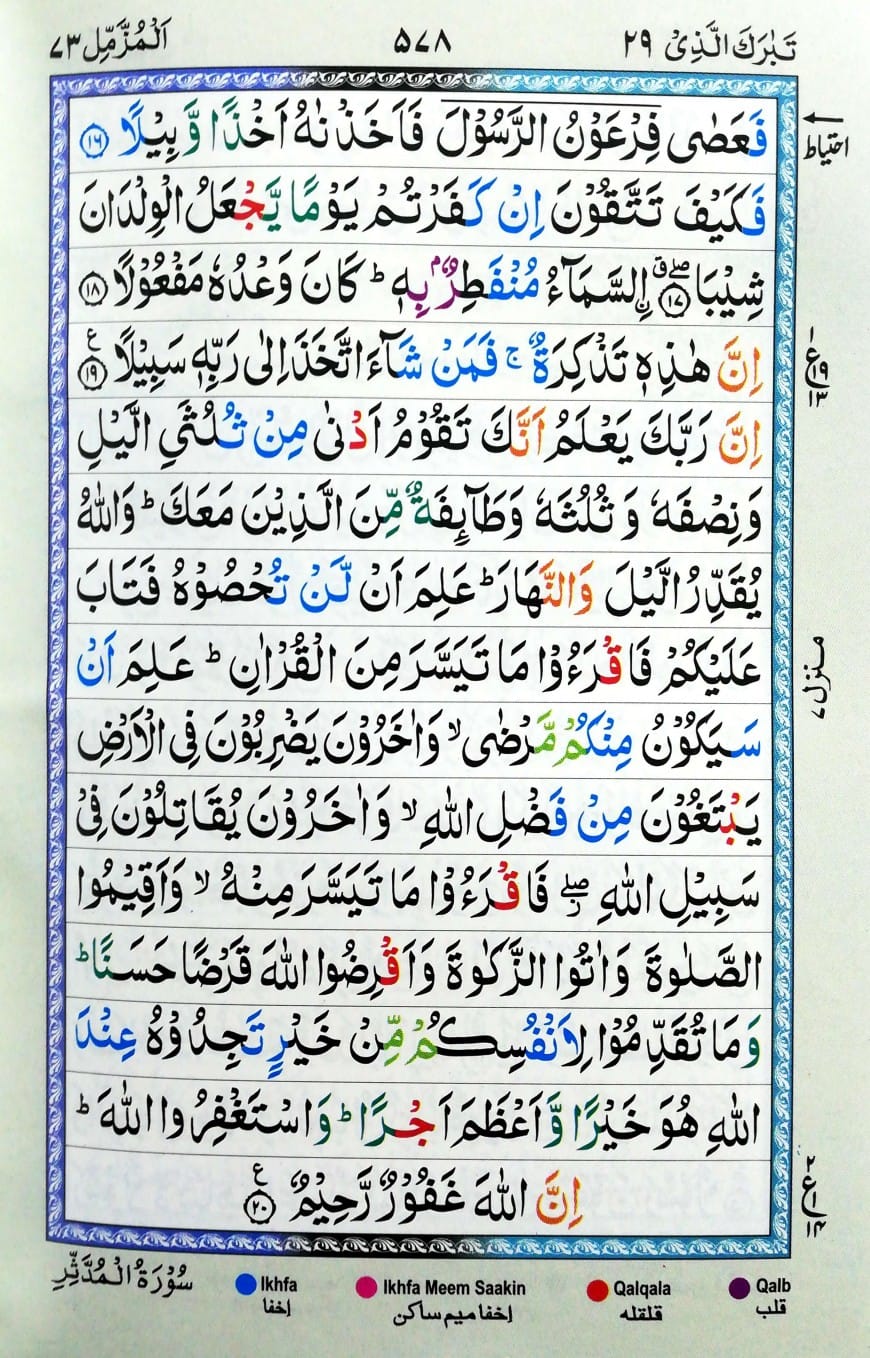 تَبٰرَكَ الَّذِیْ ٢٩
٥٧٨
اَلْمُزَّمِّل ٧٣
احتیاط
فَعَصٰى فِرْعَوْنُ الرَّسُوْلَ فَاَخَذْنٰهُ اَخْذًا وَّبِيْلًا ١٦
فَكَيْفَ تَتَّقُوْنَ اِنْ كَفَرْتُمْ يَوْمًا يَّجْعَلُ الْوِلْدَانَ
شِيْبَا ۖۗ ١٧ اِۨلسَّمَآءُ مُنْفَطِرٌۢ بِهٖ ؕ كَانَ وَعْدُهٗ مَفْعُوْلًا ١٨
اِنَّ هٰذِهٖ تَذْكِرَةٌ ۚ فَمَنْ شَآءَ اتَّخَذَ اِلٰى رَبِّهٖ سَبِيْلًا ١٩ ع
١ ع ١٩ ١٣
اِنَّ رَبَّكَ يَعْلَمُ اَنَّكَ تَقُوْمُ اَدْنٰى مِنْ ثُلُثَيِ الَّيْلِ
وَنِصْفَهٗ وَثُلُثَهٗ وَطَآئِفَةٌ مِّنَ الَّذِيْنَ مَعَكَ ؕ وَاللّٰهُ
يُقَدِّرُ الَّيْلَ وَالنَّهَارَ ؕ عَلِمَ اَنْ لَّنْ تُحْصُوْهُ فَتَابَ
عَلَيْكُمْ فَاقْرَءُوْا مَا تَيَسَّرَ مِنَ الْقُرْاٰنِ ؕ عَلِمَ اَنْ
منزل ٧
سَيَكُوْنُ مِنْكُمْ مَّرْضٰى ۙ وَاٰخَرُوْنَ يَضْرِبُوْنَ فِى الْاَرْضِ
يَبْتَغُوْنَ مِنْ فَضْلِ اللّٰهِ ۙ وَاٰخَرُوْنَ يُقَاتِلُوْنَ فِىْ
سَبِيْلِ اللّٰهِ ۖ فَاقْرَءُوْا مَا تَيَسَّرَ مِنْهُ ۙ وَاَقِيْمُوا
الصَّلٰوةَ وَاٰتُوا الزَّكٰوةَ وَاَقْرِضُوا اللّٰهَ قَرْضًا حَسَنًا ؕ
وَمَا تُقَدِّمُوْا لِاَنْفُسِكُمْ مِّنْ خَيْرٍ تَجِدُوْهُ عِنْدَ
اللّٰهِ هُوَ خَيْرًا وَّاَعْظَمَ اَجْرًا ؕ وَاسْتَغْفِرُوا اللّٰهَ ؕ
اِنَّ اللّٰهَ غَفُوْرٌ رَّحِيْمٌ ٢٠ ع
٢ ع ١ ١٤
سُوْرَةُ الْمُدَّثِّرِ
Ikhfa
اِخفا
Ikhfa Meem Saakin
اِخفا میم ساکن
Qalqala
قلقله
Qalb
قلب